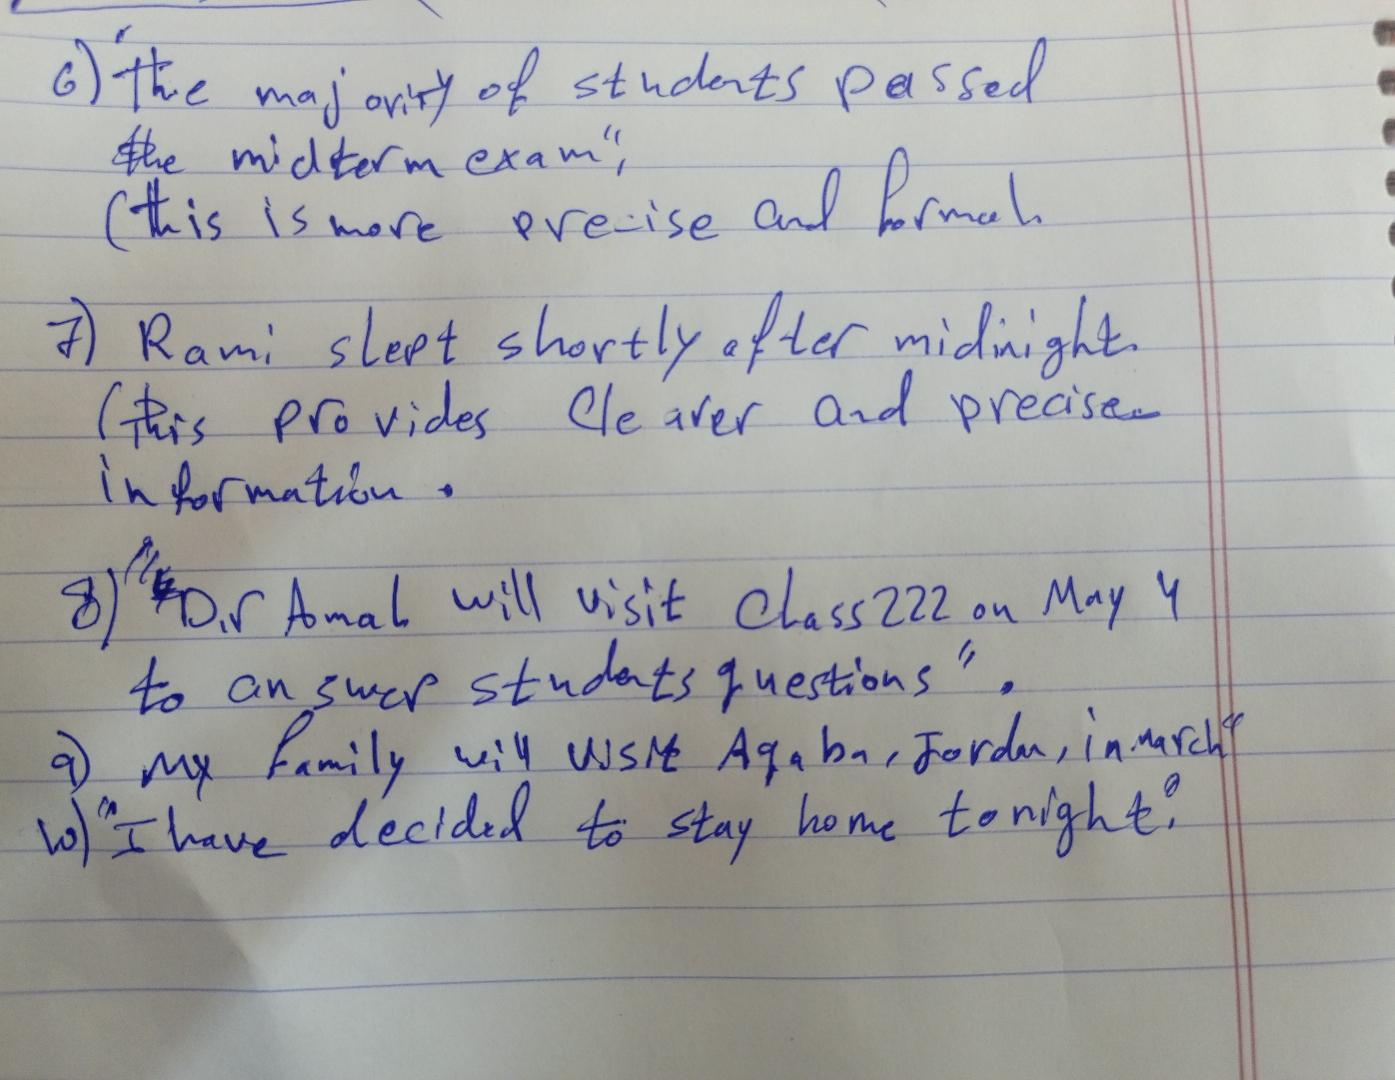 6) "The majority of students passed
the midterm exam",
(this is more precise and formal.
7) Rami slept shortly after midinight.
(this provides Clearer and precise
information.
8) "D.r Amal will visit Class 222 on May 4
to answer students questions".
9) My family will visit Aqaba, Jordan, in march"
10) "I have decided to stay home tonight."